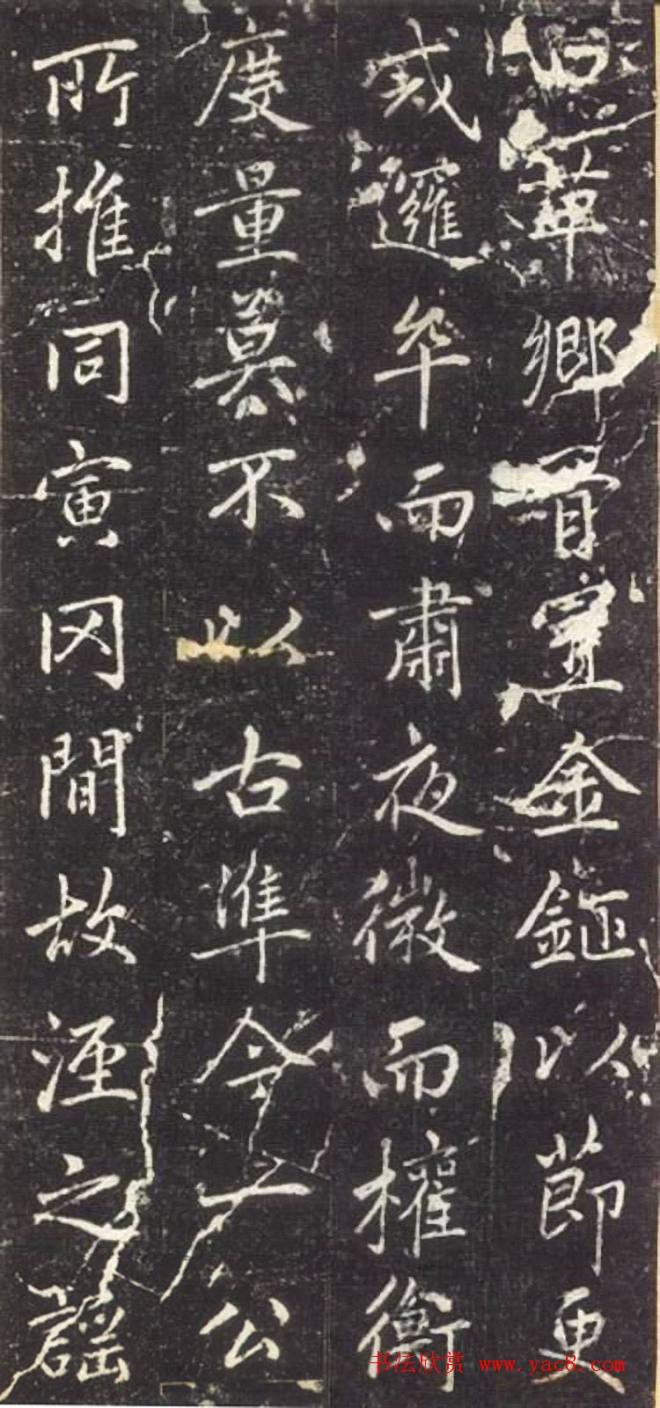 華鄉胥置金鉦以節更
戒邏卒而肅夜徼而權衡
度量莫不以古準今一公
所推同寅罔間故涇之謡
书法欣赏 www.yac8.com